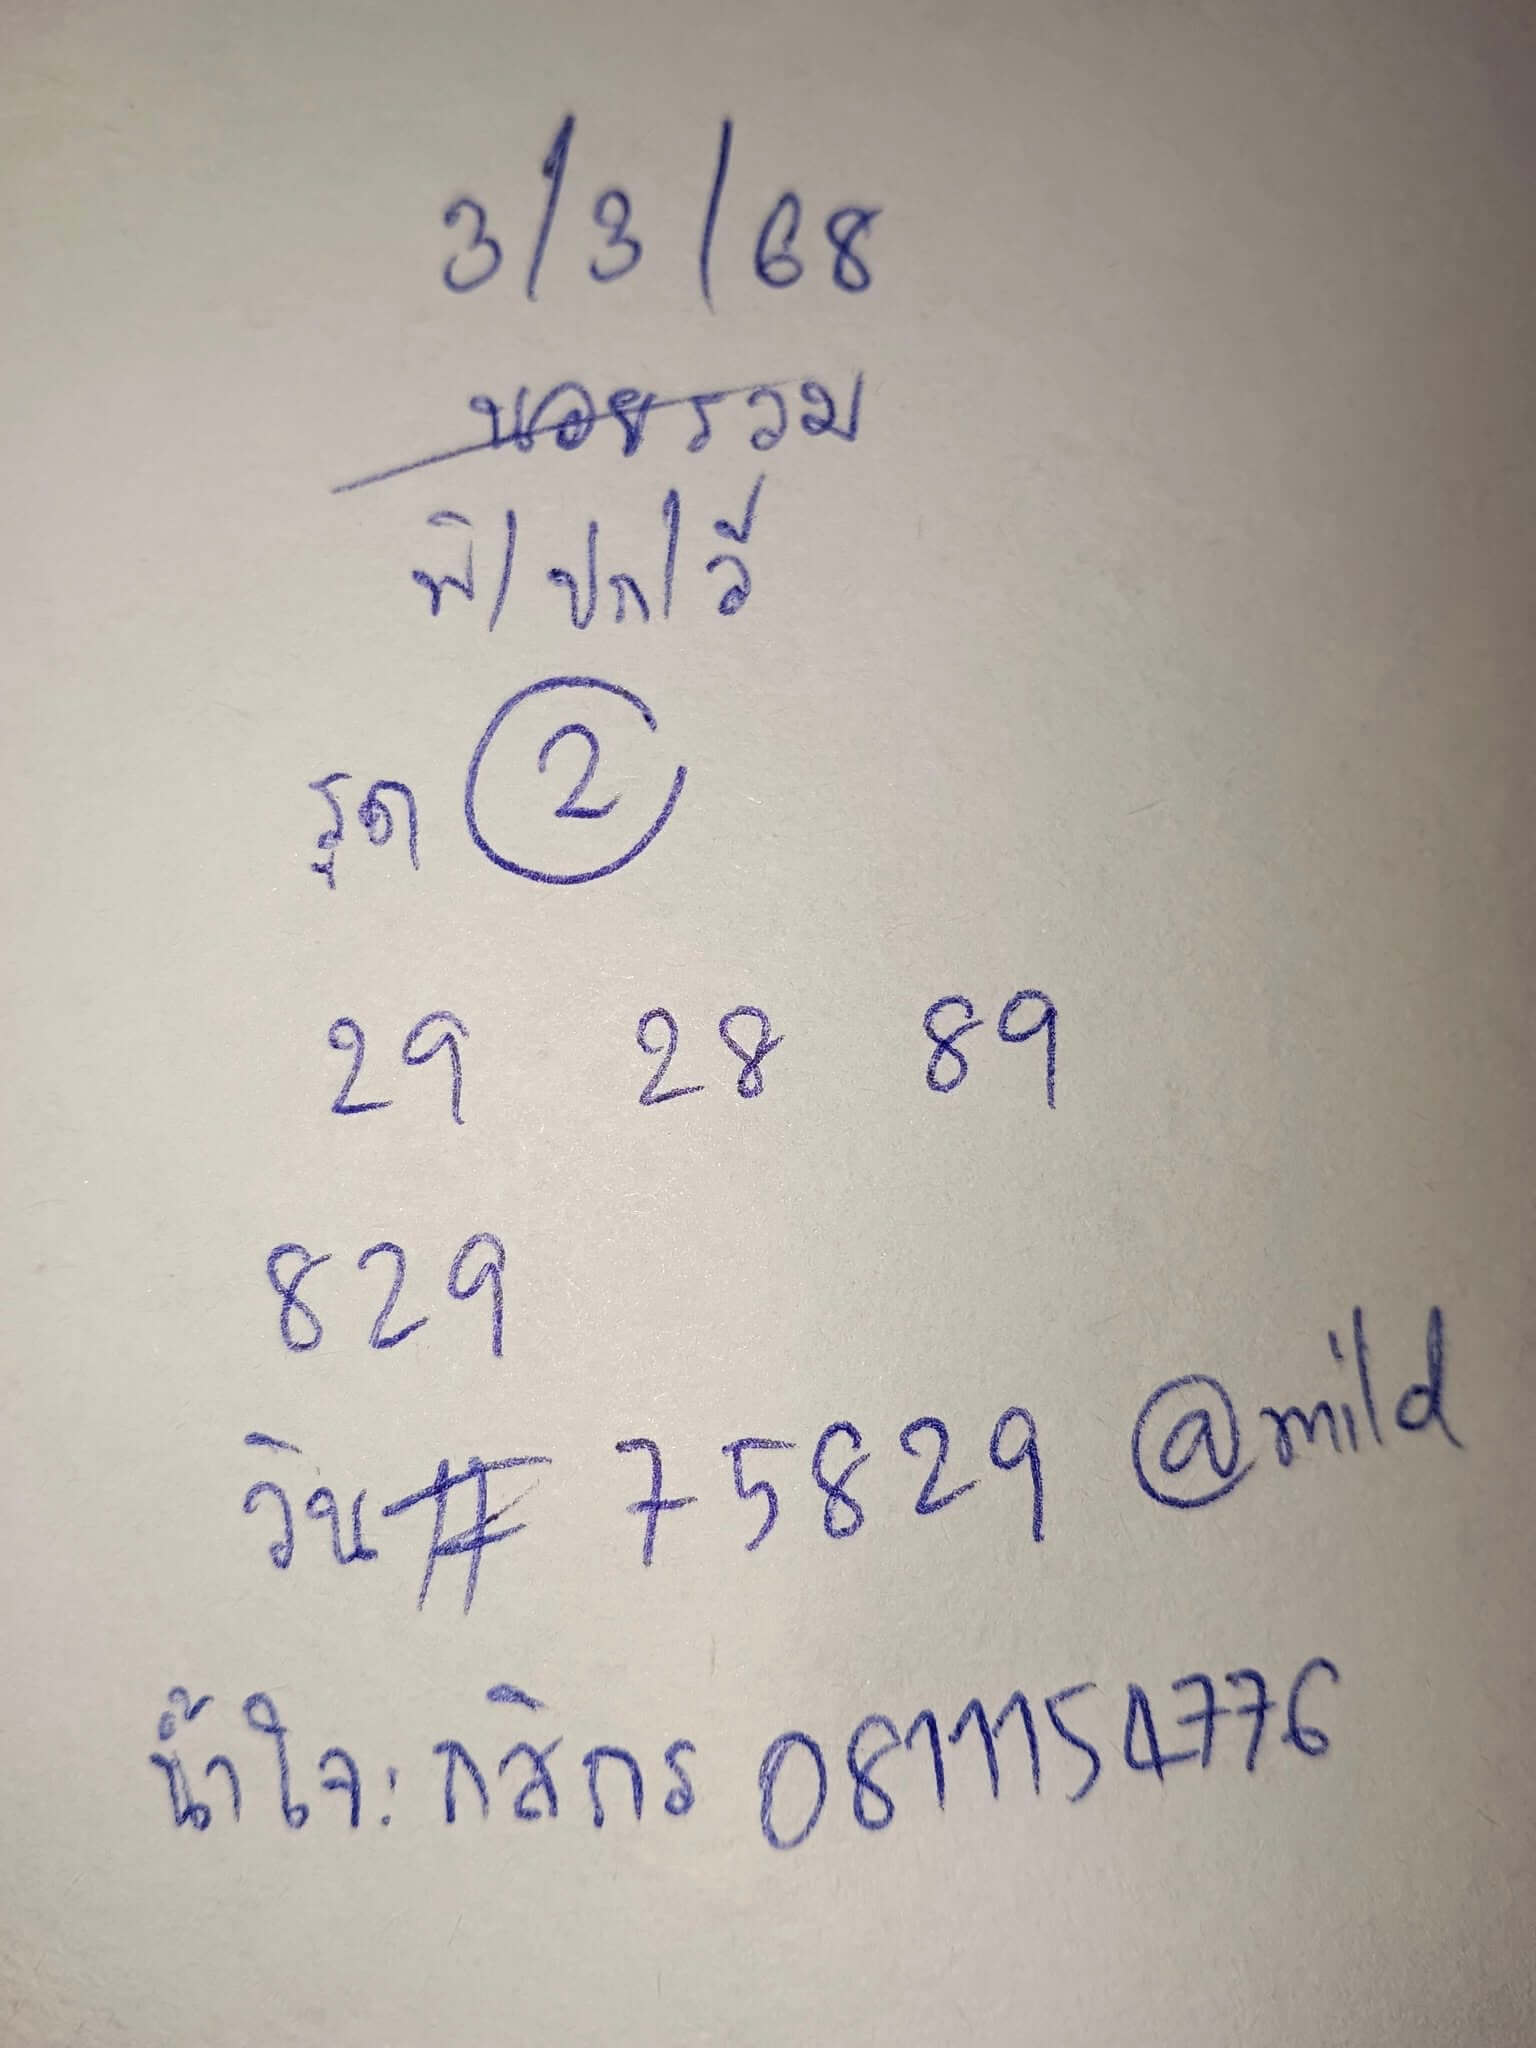 3/3/68
นอยรวม
พิ/ปก/วี
รูด 2
29 28 89
829
วิน# 75829 @mild
น้ำใจ: กสิกร 0811154776